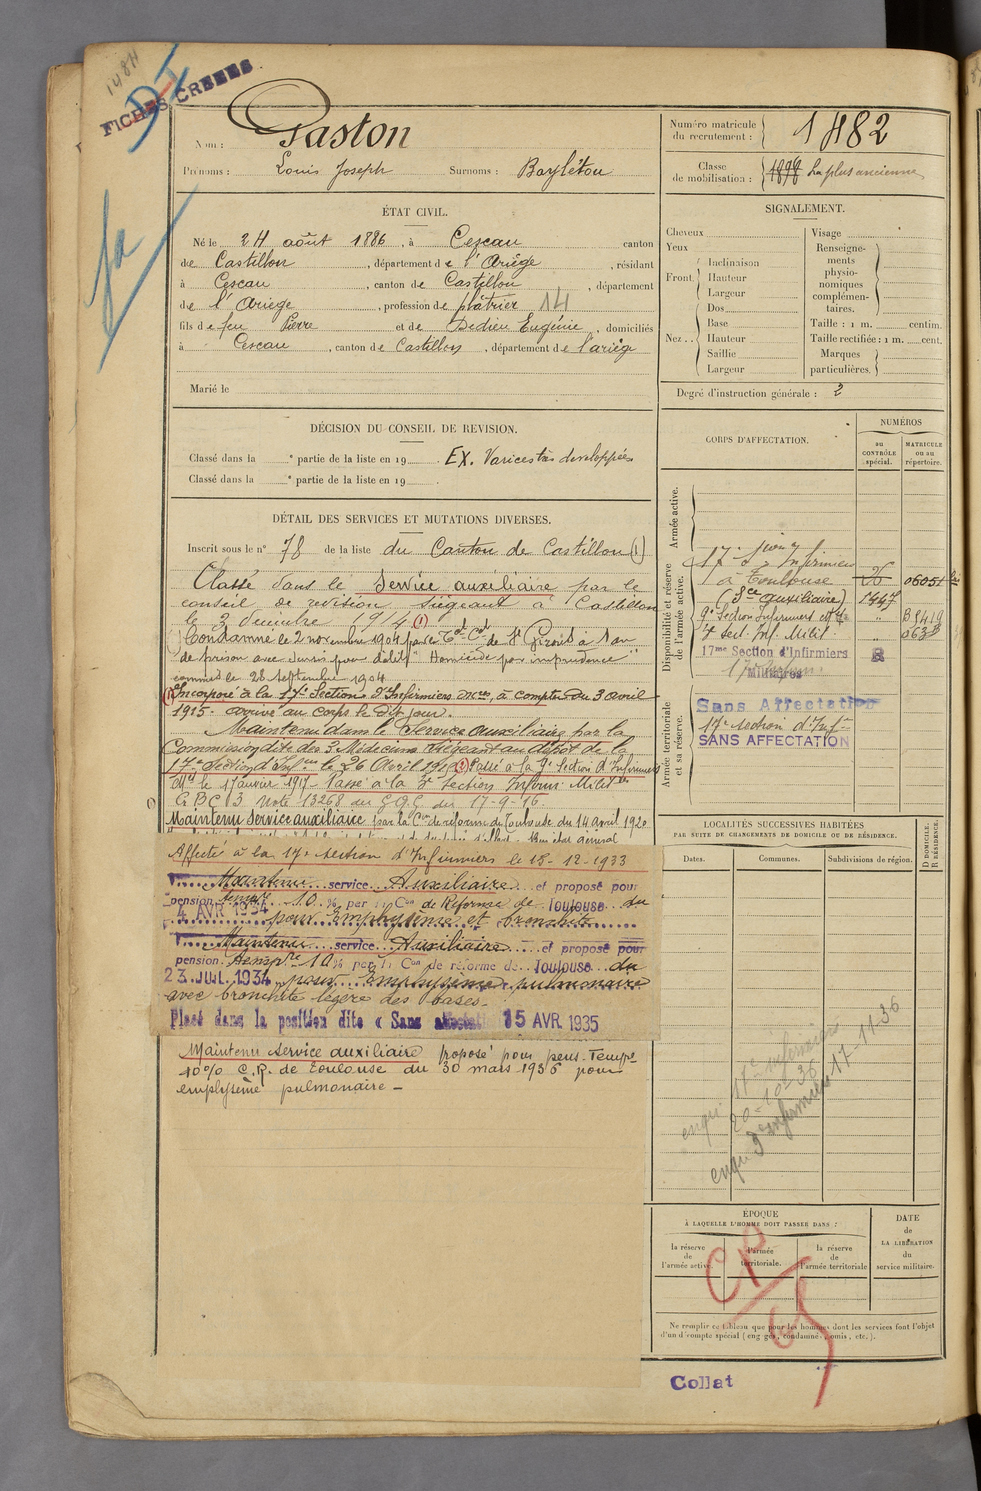 148H
D I
FICHES CRÉÉES
Nom : Gaston
Prénoms : Louis Joseph Surnoms : Bayléton
ÉTAT CIVIL.
Né le 24 août 1886, à Cescau canton
de Castillon, département de l'Ariège, résidant
à Cescau, canton de Castillon, département
de l'Ariège, profession de plâtrier 14
fils de feu Pierre et de Dedieu Eugénie, domiciliés
à Cescau, canton de Castillon, département de l'ariège
Marié le
DÉCISION DU CONSEIL DE REVISION.
Classé dans la e partie de la liste en 19 . EX. Varices très developpées
Classé dans la e partie de la liste en 19 .
DÉTAIL DES SERVICES ET MUTATIONS DIVERSES.
Inscrit sous le n° 78 de la liste du Canton de Castillon (1)
Classé dans le Service auxiliaire par le
conseil de revision siégeant à Castillon
le 3 décembre 1914 (1)
Condamné le 2 novembre 1904 par le Tal Cel de St Girons à 1 an
de prison avec sursis pour délit "Homicide par imprudence"
commis le 28 Septembre 1904
Incorporé à la 17e Section d'Infirmiers Mres, à compter du 3 avril
1915. arrivé au corps le dit jour.
Maintenu dans le Service auxiliaire par la
Commission dite des 3 Médecins siégeant au dépôt de la
17e Section d'Infers le 26 Avril 191 Passé à la 9e Section d'Infirmiers
Mres le 1 Janvier 1917. Passé à la 3e Section Infirm. Milit.
G.B.C 13 Note 13268 du G.Q.G du 17-9-16.
Maintenu Service auxiliaire par la Con de réforme de Toulouse du 14 avril 1920
Affecté à la 17e Section d'Infirmiers le 15-12-1933
Maintenu service Auxiliaire et proposé pour
pension temp. 10 % par la Con de Réforme de Toulouse du
4 AVR 1934 pour Emphysème et bronchite
Maintenu service Auxiliaire et proposé pour
pension temp.re 10 % par la Con de réforme de Toulouse du
23 JUIL. 1934 pour Emphysème pulmonaire
avec bronchite légère des bases.
Placé dans la position dite « Sans affectation 15 AVR 1935
Maintenu service auxiliaire proposé pour pens. Tempe
10% C.R. de Toulouse du 30 mars 1936 pour
emphysème pulmonaire -
Numéro matricule du recrutement : 1482
Classe de mobilisation : 1898 La plus ancienne
SIGNALEMENT.
Cheveux
Yeux
Front Inclinaison
Hauteur
Largeur
Nez Dos
Base
Hauteur
Saillie
Largeur
Visage
Renseignements physionomiques complémentaires.
Taille : 1 m. centim.
Taille rectifiée : 1 m. cent.
Marques particulières.
Degré d'instruction générale : 2
CORPS D'AFFECTATION.
NUMÉROS
au CONTRÔLE spécial.
MATRICULE ou au répertoire.
Armée active.
Disponibilité et réserve de l'armée active.
17e Son Infirmiers
à Toulouse 26 06051
(Sce auxiliaire) 1447
9e Section Infirmiers " B9419
3e Sect. Inf. Milit. "
17me Section d'Infirmiers
Militaires
Armée territoriale et sa réserve.
Sans Affectation
17e section d'Inf.
SANS AFFECTATION
LOCALITÉS SUCCESSIVES HABITÉES
PAR SUITE DE CHANGEMENTS DE DOMICILE OU DE RÉSIDENCE.
D DOMICILE.
R RÉSIDENCE.
Dates. Communes. Subdivisions de région.
17e infirmiers
20-10-36
17-11-36
ÉPOQUE
À LAQUELLE L'HOMME DOIT PASSER DANS :
la réserve de l'armée active.
l'armée territoriale.
la réserve de l'armée territoriale
DATE de LA LIBÉRATION du service militaire.
CP
Ne remplir ce tableau que pour les hommes dont les services font l'objet
d'un décompte spécial (engagés, condamnés, omis, etc.).
Collat